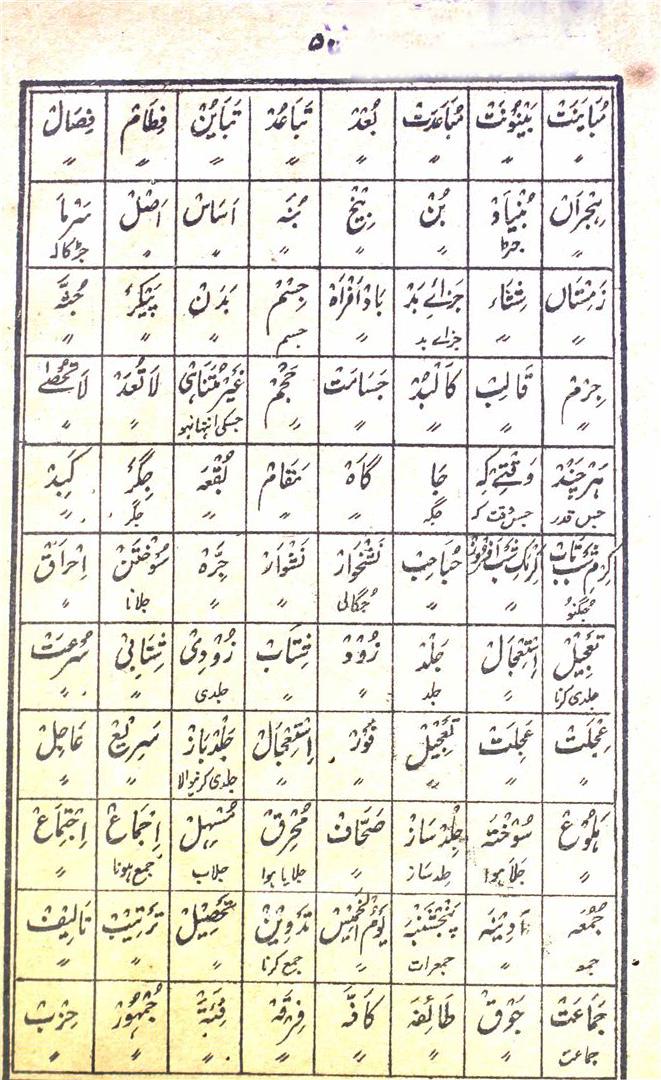 ۵۰
مُبَایَنَتْ بَیْنُونَتْ مُبَاعَدَتْ بُعْد تَبَاعُد تَبَایُنْ فِطَامْ فِصَالْ
〃 〃 〃 〃 〃 〃 〃 〃
ہِجْرَاں بُنْیَاد بُنْ بِیْخ بُنَہ اَسَاسْ اَصْل سَرْمَا
〃 جڑ 〃 〃 〃 〃 〃 جڑکالہ
زَمِسْتَاں شِتَاء جَزَائے بَدْ بَادْ اَفْرَاہ جِسْم بَدَنْ پَیْکَرْ جُثَّہ
〃 〃 جزاے بد 〃 جسم 〃 〃 〃
جِرْم قَالِبْ کَالْبُدْ جَسَامَتْ حَجْم غَیْرُ مُتَنَاہِی لَا تُعَدْ لَا تُحْصٰے
〃 〃 〃 〃 〃 جسکی انتہا نہو 〃 〃
ہَرْچَنْد وَقْتِیْکہ جَا گَاہ مَقَامْ بُقْعَہ جِگَرْ کَبِدْ
جس قدر جس وقت کہ جگہ 〃 〃 〃 جگر 〃
کِرْمِ شَبْ تَابْ کِرْمَکِ شَبْ اَفْرُوز حُبَاحِبْ نَشْخُوَارْ نَشْوَارْ جِرَّہ سُوخْتَنْ اِحْرَاقْ
جگنو 〃 〃 جگالی 〃 〃 جلانا 〃
تَعْجِیْل اِسْتِعْجَالْ جَلْد زُوْد شِتَابْ زُوْدِی شِتَابِی سُرْعَتْ
جلدی کرنا 〃 جلد 〃 〃 جلدی 〃 〃
عِجْلَتْ عَجَلَتْ تَعْجِیْل فَوْر اِسْتِعْجَالْ جَلْدبَازْ سَرِیْع عَاجِلْ
〃 〃 〃 〃 〃 جلدی کرنیوالا 〃 〃
ہَلُوْع سُوخْتَہ جِلْدسَازْ صَحَّافْ مُحْرَقْ مُسْہِل اِجْمَاعْ اِجْتِمَاعْ
〃 جلا ہوا جلد ساز 〃 جلایا ہوا جلاب جمع ہونا 〃
جُمُعَہ آدِیْنَہ پَنْجشَنْبَہ یَوْمُ الْخَمِیْسْ تَدْوِیْن تَحْصِیْل تَرْتِیْبْ تَالِیْفْ
جمعہ 〃 جمعرات 〃 جمع کرنا 〃 〃 〃
جَمَاعَتْ جَوْقْ طَائِفَہ کَافَّہ فِرْقَہ فِئَۃ جُمْہُوْرْ حِزْبْ
جماعت 〃 〃 〃 〃 〃 〃 〃